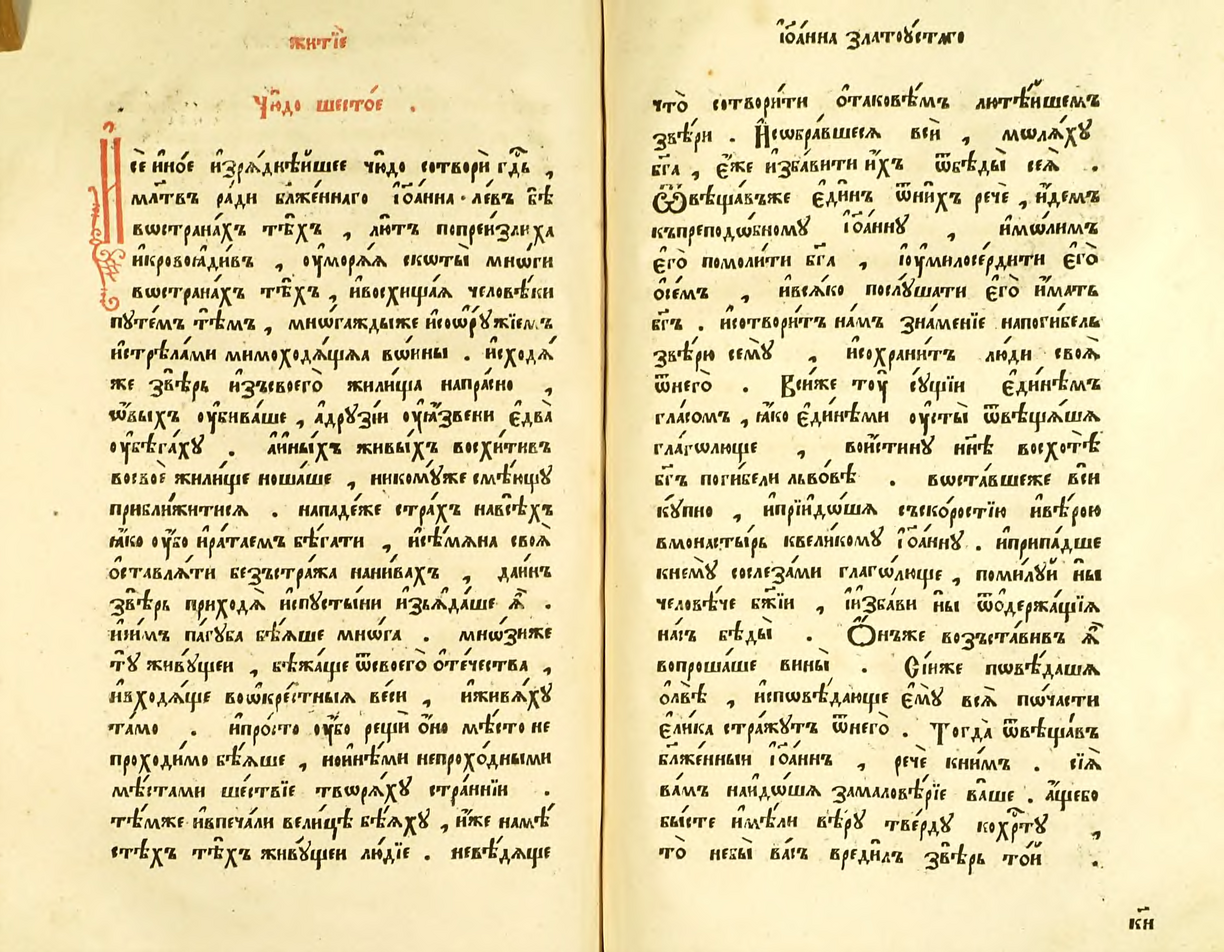 житїѐ
Чю́до шесто́е .
И се и҆но́е и҆зрѧ́днѣйшее чю́до сотворѝ гдⷭ҇ь ,
мл҃твъ ра́ди бл҃же́ннаго і҆ѡа́нна · ле́въ бѣ̀
вѡстрана́хъ тѣ́хъ , лю́тъ попреи́злиха
и҆кровоꙗ́дивъ , ᲂу҆морѧ́ѧ скоты̀ мнѡ́ги
вѡстрана́хъ тѣ́хъ , и҆восхища́ѧ человѣ́ки
пꙋте́мъ тѣ́мъ , мнѡга́ждыже и҆соѡрꙋ́жїемъ
и҆стрѣла́ми мимоходѧ́щѧѧ вѡ́ины . и҆сходѧ́
же ѕвѣ́рь и҆зъсвоегѡ̀ жилища̀ напра́сно ,
ѻ҆́выхъ ᲂу҆бива́ше , а҆дрꙋзі́и ᲂу҆ꙗ́звени є҆два̀
ᲂу҆бѣга́хꙋ . а҆и҆́ныхъ живы́хъ восхи́тивъ
восвоѐ жили́ще ноша́ше , никомꙋ́же смѣ́ющꙋ
прибли́житисѧ . нападе́же стра́хъ навсѣ́хъ
ꙗ҆́ко ᲂу҆́бо и҆ра́таемъ бѣ́гати , и҆сѣ́мѧна своѧ̀
ѡ҆ставлѧ́ти безъстра́жа нани́вахъ , да́инъ
ѕвѣ́рь приходѧ̀ и҆спꙋсты́ни и҆зъꙗда́ше ѧ҆̀ .
и҆ни́мъ па́гꙋба бѣ́ѧше мнѡ́га . мнѡ́зиже
тꙋ̀ живꙋ́щеи , бѣжа́ще ѿсвоегѡ̀ ѻ҆те́чества ,
и҆входѧ́ще воѡкре́стныѧ ве́си , и҆живѧ́хꙋ
та́мо . и҆про́сто ᲂу҆́бо рещѝ ѻ҆́но мѣ́сто не
проходи́мо бѣ́ѧше , нои҆нѣ́ми непрохо́дными
мѣ́стами ше́ствїе творѧ́хꙋ стра́ннїи .
тѣ́мже и҆впеча́ли вели́цѣ бѣ́ѧхꙋ , и҆́же намѣ́
стѣхъ тѣ́хъ живꙋ́щеи лю́дїе . невѣ́дѧще
і҆ѡа́нна златоꙋ́стаго
что̀ сотвори́ти ѡ҆тако́вѣмъ лютѣ́йшемъ
ѕвѣ́ри . И҆собра́вшесѧ всѝ , молѧ́хꙋ
бг҃а , є҆́же и҆зба́вити и҆́хъ ѿбѣды̀ сеѧ̀ .
Ѿвѣща́въже є҆ди́нъ ѿни́хъ речѐ , и҆́демъ
къпреподо́бномꙋ і҆ѡа́ннꙋ , и҆мо́лимъ
є҆го̀ помоли́ти бг҃а , і҆ꙋмилосе́рдити є҆го̀
ѡ҆се́мъ , и҆всѧ́ко послꙋ́шати є҆го̀ и҆́мать
бг҃ъ . и҆сотвори́тъ на́мъ зна́менїе напоги́бель
ѕвѣ́рю семꙋ̀ , и҆сохрани́тъ лю́ди своѧ̀
ѿнегѡ̀ . Всѝже тꙋ̀ сꙋ́щїи є҆ди́нѣмъ
гла́сомъ , ꙗ҆́ко є҆ди́нѣми ᲂу҆сты̀ ѿвѣща́ша
глаго́люще , вои́стинꙋ нн҃ѣ восхотѣ̀
бг҃ъ поги́бели льво́вѣ . воста́вшеже всѝ
кꙋ́пно , и҆прїидо́ша съско́ростїю и҆вѣ́рою
вмонасты́рь квели́комꙋ і҆ѡа́ннꙋ . и҆припа́дше
кнемꙋ̀ сослеза́ми глаго́люще , поми́лꙋй ны̀
человѣ́че бж҃їи , і҆и҆зба́ви ны̀ ѿѡдержа́щїѧ
на́съ бѣды̀ . Ѻ҆́нъже возъста́вивъ ѧ҆̀
вопроша́ше вины̀ . Сїи́же повѣ́даша
ѡ҆лвѣ̀ , и҆сповѣ́дающе є҆мꙋ̀ всѧ̀ поча́сти
є҆ли́ка стра́жꙋтъ ѿнегѡ̀ . Тогда̀ ѿвѣща́въ
бл҃же́нныи і҆ѡа́ннъ , речѐ кни́мъ . сїѧ̀
ва́мъ наидо́ша замаловѣ́рїе ва́ше . а҆́щебо
бы́сте и҆мѣ́ли вѣ́рꙋ тве́рдꙋ кохрⷭ҇тꙋ̀ ,
то̀ небы̀ ва́съ вреди́лъ ѕвѣ́рь то́й .
к҃и